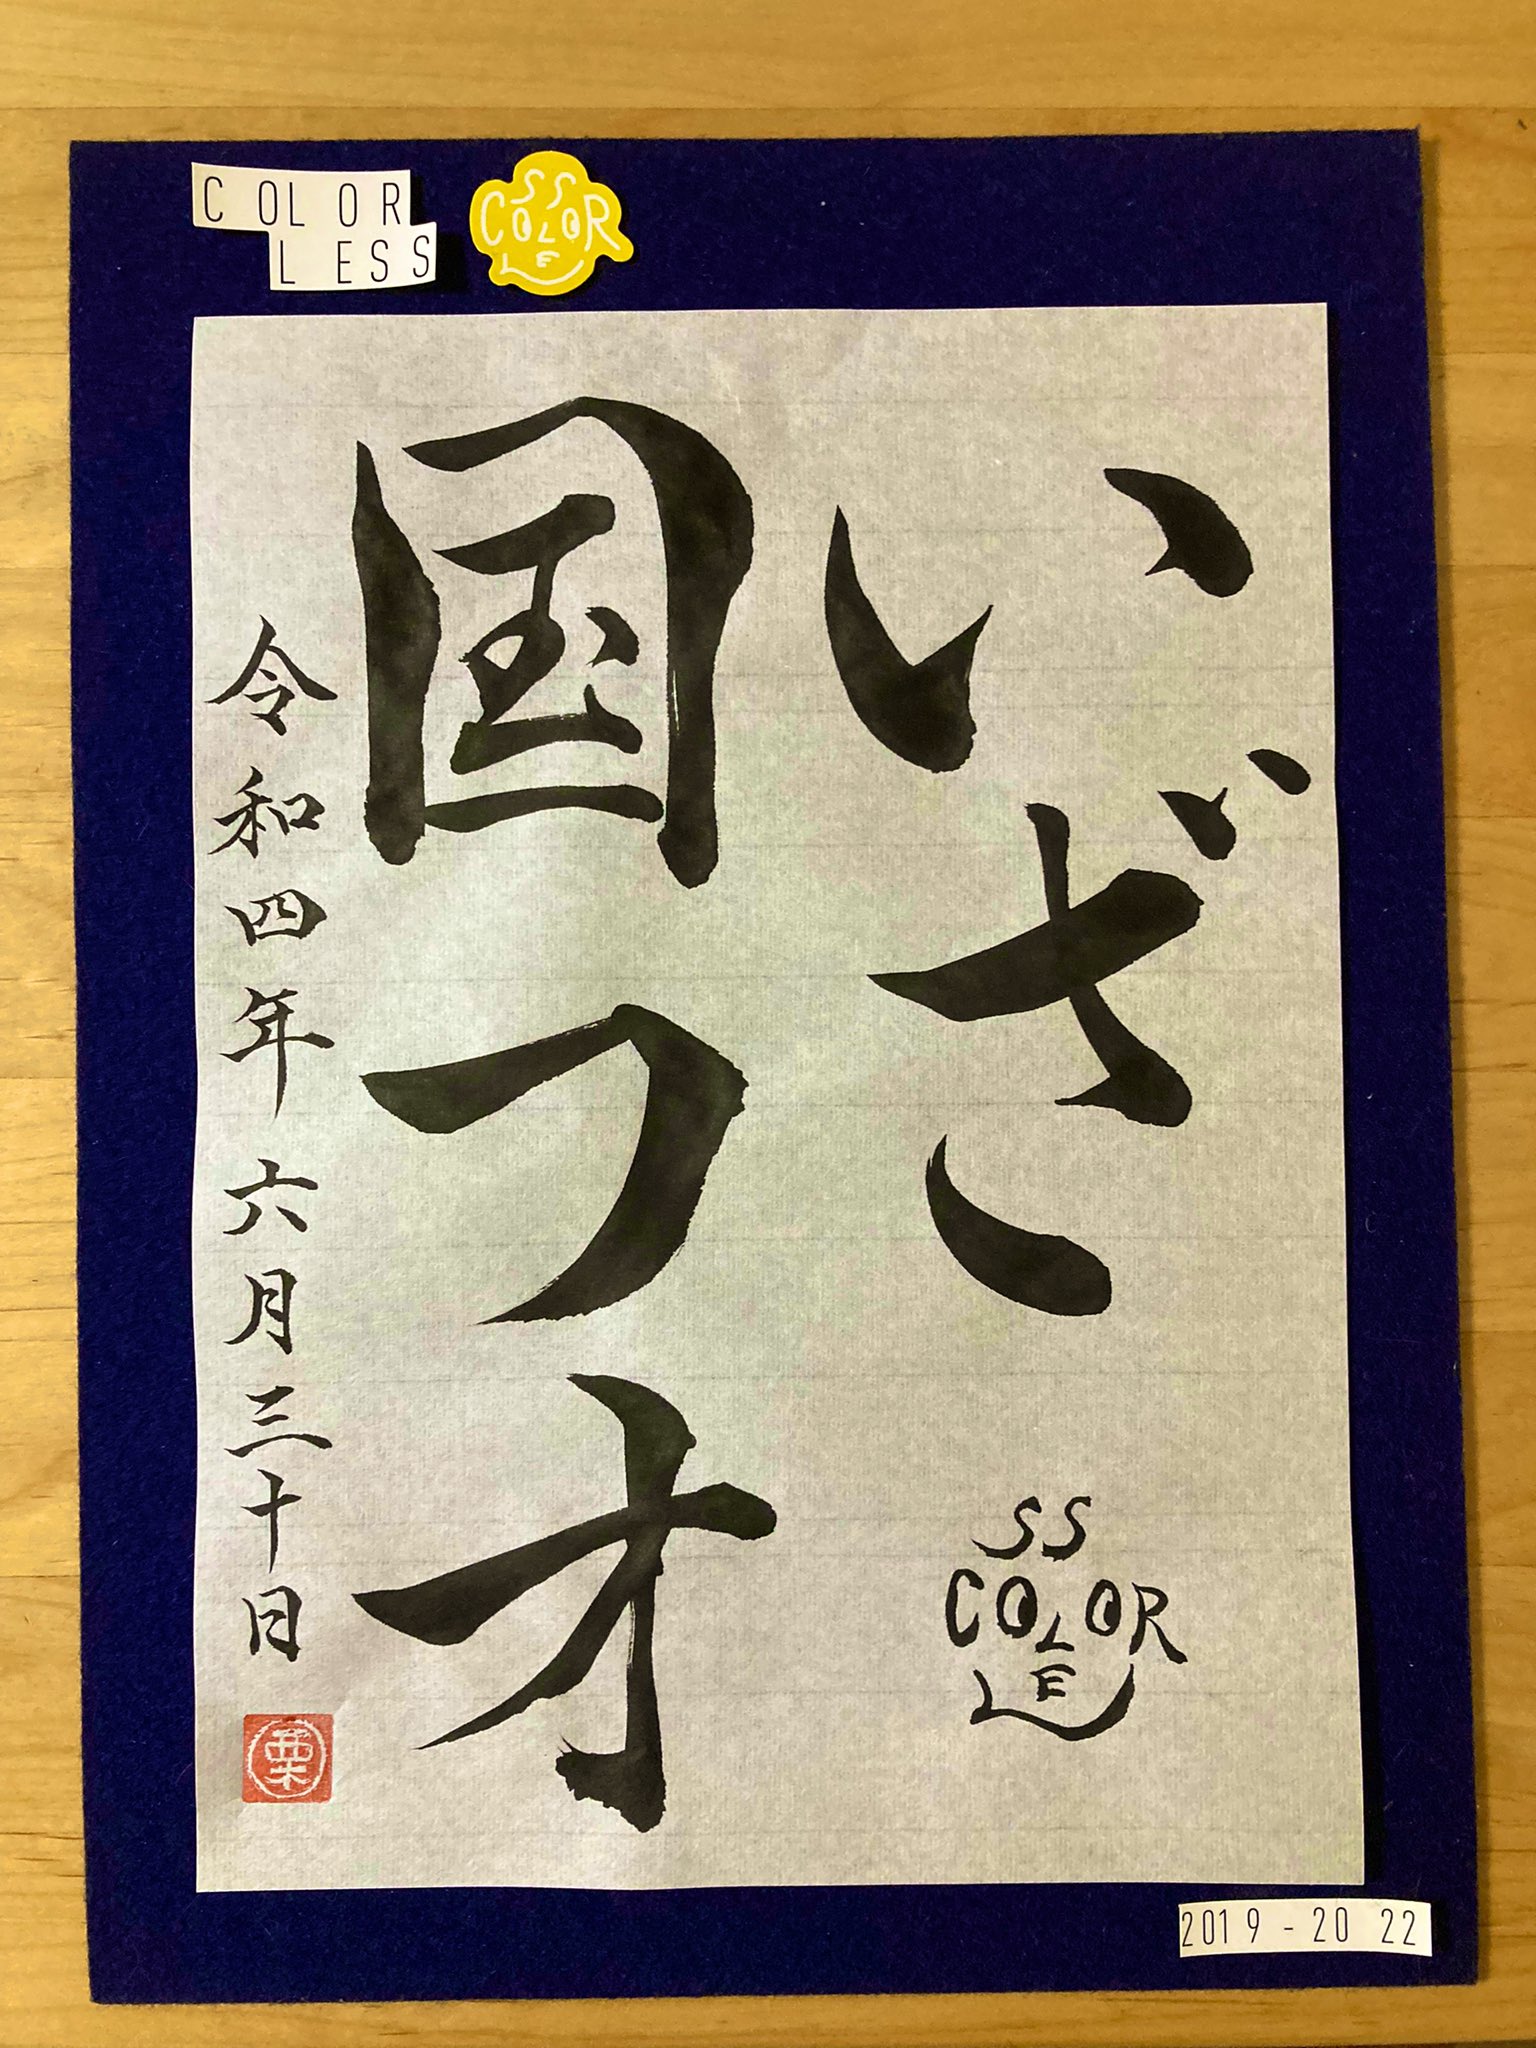 COLOR
LESS
SS
COLOR
LE
いざ
国フォ
令和四年六月三十日
SS
COLOR
LE
栗
2019-2022